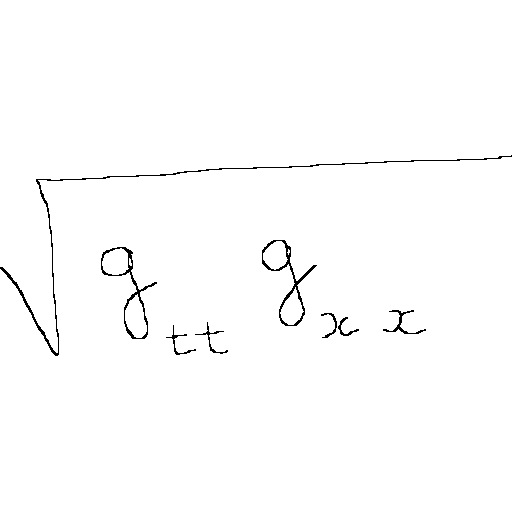 \sqrt{g_{tt} g_{xx}}